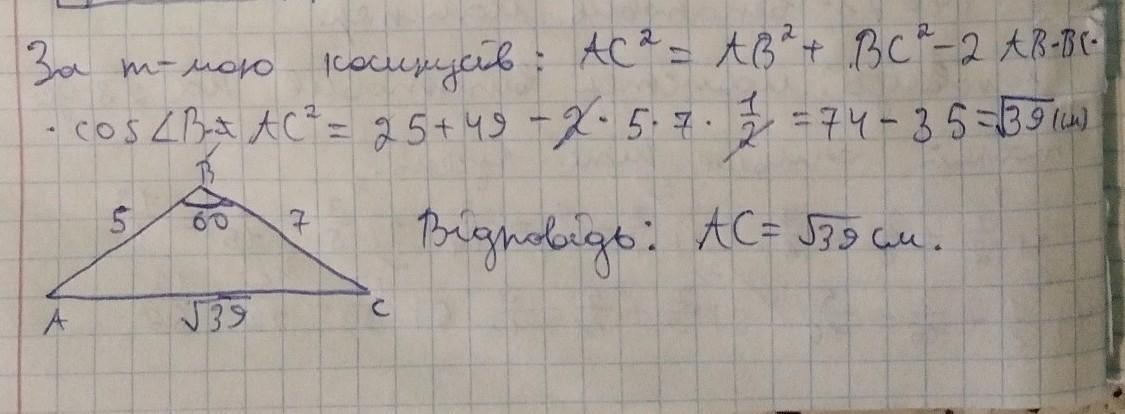 За т-мою косинусів: AC² = AB² + BC² - 2 AB·BC·
· cos∠B AC² = 25 + 49 - 2 · 5 · 7 · 1/2 = 74 - 35 = √39 (см)
B
5 60 7
Відповідь: AC = √39 см.
A √39 C